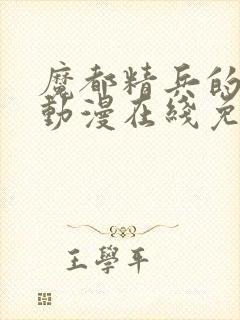 魔都精兵的
動漫在綫免
王學平